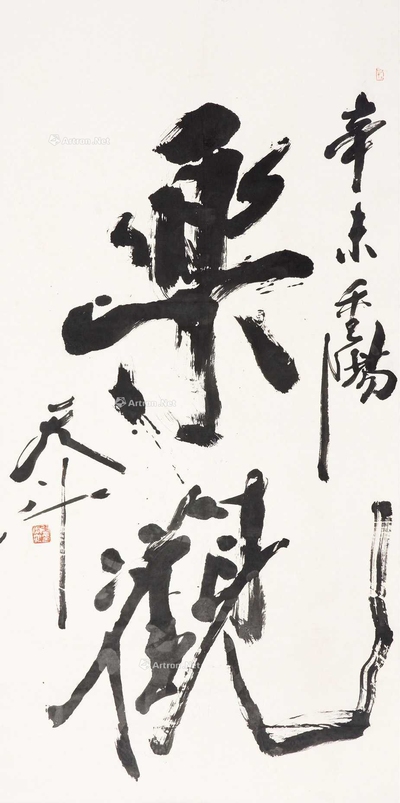 辛未重陽
樂觀
天斗
Artron.Net
Artron.Net
Artron.Net